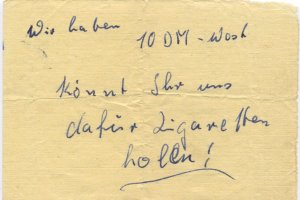 Wir haben
10 DM - West
könnt Ihr uns
dafür Zigaretten
holen!